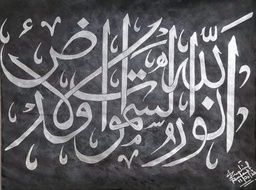 الله نور السموت والارض